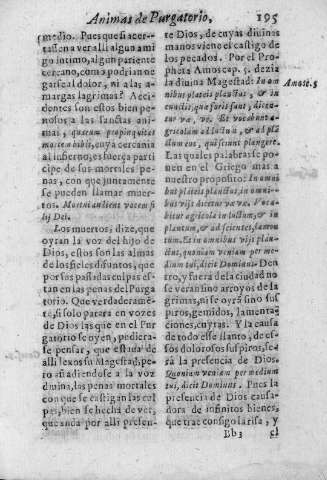 Animas de Purgatorio, 195
medio. Pues que si acer-
tassen a ver alli algun ami
go intimo, algun pariente
cercano, como podrian ne
garse al dolor, ni a las a-
margas lagrimas? Acci-
dentes son estos bien pe-
nosos a las sanctas ani-
mas, quæ
morte habilis, cuya cercania
al infierno, es fuerça parti-
cipe de sus mortales pe-
nas, con que juntamente
se pueden llamar muer-
tos. Mortui audient vocem fi
lij Dei.
Los muertos; dize, que
oyran la voz del hijo de
Dios, estos son las almas
de los fieles difuntos, que
por sus passadas culpas es-
tan en las penas del Purga
torio. Que verdaderamẽ-
te, si solo parara en vozes
de Dios las que en el Pur
gatorio se oyen, pudiera-
se pensar, que estava de
alli lexos su Magestad, pe-
ro añadiendose a la voz
divina, las penas mortales
con que se castigan las cul
pas, bien se hecha de ver,
que anda por alli presen-
te Dios, de cuyas divinas
manos viene el castigo de
los pecados. Por el Pro-
pheta Amos cap. 5. dezia
la divina Magestad: In om
nibus plateis planctus, & in
cunctis, quæ foris sunt, dicen-
tur væ, væ. Et vocabunt a-
gricolam ad luctum, & ad plã
ctum eos, qui sciunt plangere.
Las quales palabras se po-
nen en el Griego mas a
nuestro proposito: In om
nibus plateis planctus, in omni-
bus vijs dicetur væ væ. Voca-
bitur agricola in luctum, & in
planctum, & ad scientes, lamen
tum. Et in omnibus vijs plan-
ctus, quoniam veniam per me-
dium tui, dicit Dominus. Den
tro, y fuera de la ciudad no
se veran sino arroyos de la
grimas, ni se oyrã sino sus
piros, gemidos, lamenta-
ciones, cuytas. Y la causa
de todo esse llanto, de es-
sos dolorosos suspiros, se-
rà la presencia de Dios.
Quoniam veniam per medium
tui, dicit Dominus. Pues la
presencia de Dios causa-
dora de infinitos bienes,
que trae consigo la risa, y
Bb3 el
Amos. 5